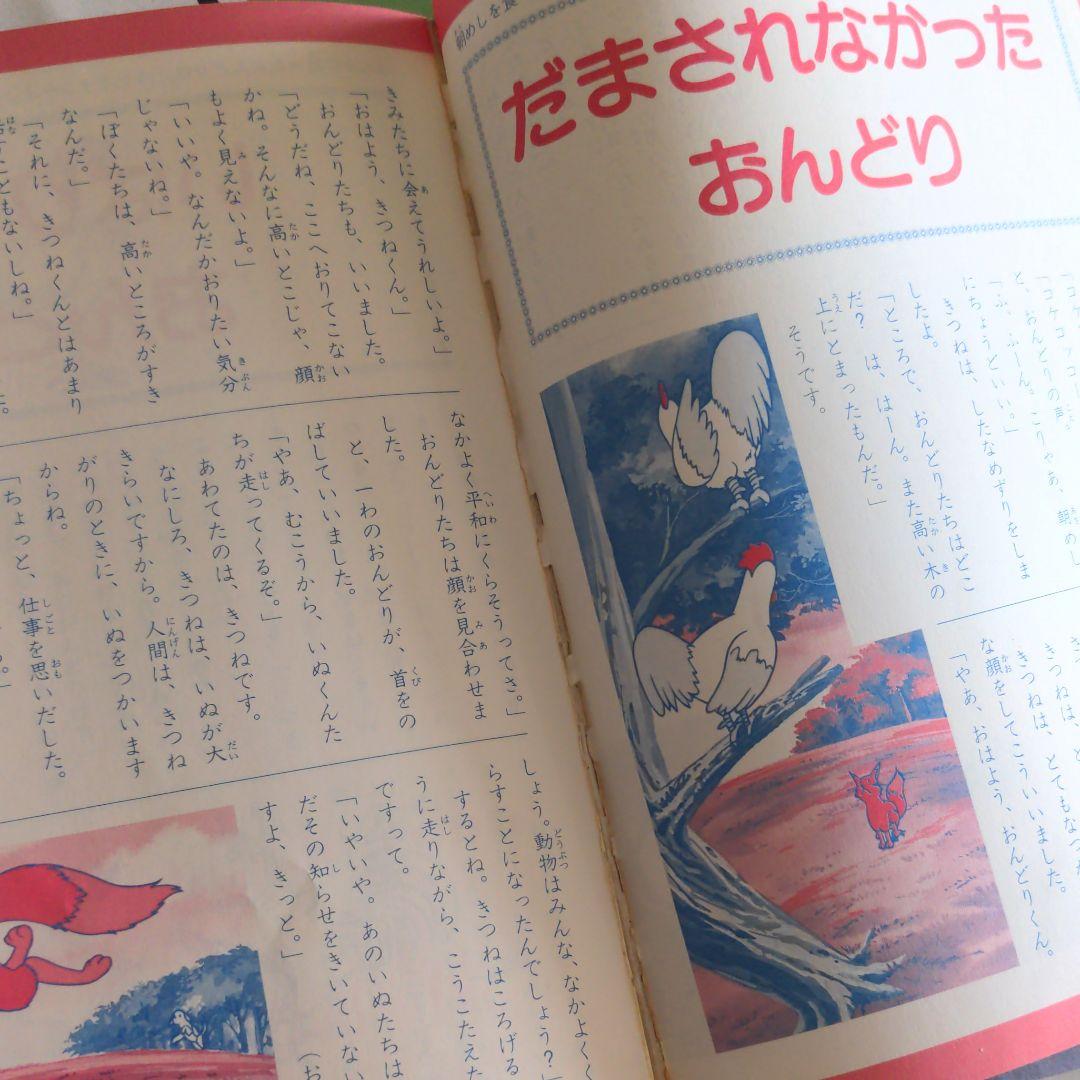 朝めしを食
だまされなかった
おんどり
「コケコッコー
と、おんどりの声。
「ふ、ふーん。こりゃあ、朝めし
にちょうどいい。」
きつねは、したなめずりをしま
したよ。
「ところで、おんどりたちはどこ
だ？　は、はーん。また高い木の
上にとまったもんだ。」
そうです。
きつねは、
きつねは、とてもなつ
な顔をしてこういいました。
「やあ、おはよう、おんどりくん。
きみたちに会えてうれしいよ。」
「おはよう、きつねくん。」
おんどりたちも、いいました。
「どうだね、ここへおりてこない
かね。そんなに高いとこじゃ、顔
もよく見えないよ。」
「いいや。なんだかおりたい気分
じゃないね。」
「ぼくたちは、高いところがすき
なんだ。」
「それに、きつねくんとはあまり
話すこともないしね。」
なかよく平和にくらそうってさ。」
おんどりたちは顔を見合わせま
した。
と、一わのおんどりが、首をの
ばしていいました。
「やあ、むこうから、いぬくんた
ちが走ってくるぞ。」
あわてたのは、きつねです。
なにしろ、きつねは、いぬが大
きらいですから。人間は、きつね
がりのときに、いぬをつかいます
からね。
「ちょっと、仕事を思いだした。
しょう。動物はみんな、なかよく
らすことになったんでしょう？」
するとね。きつねはころげる
うに走りながら、こうこたえた
ですって。
「いやいや。あのいぬたちは
だその知らせをきいていない
すよ、きっと。」
（お